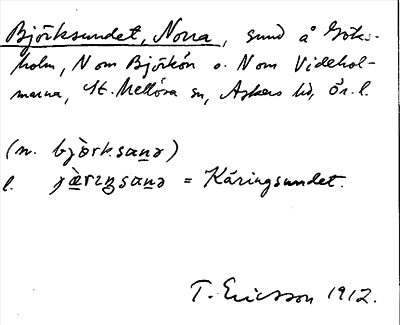 Björksundet, Norra, sund å Göks-
holm, N om Björkön o. N om Videhol-
marna, St. Mellösa sn, Askers hd, Ör. l.
(n. björksanə)
l. çæ̀rɪŋsanə = Käringsundet.
T. Ericsson 1912.